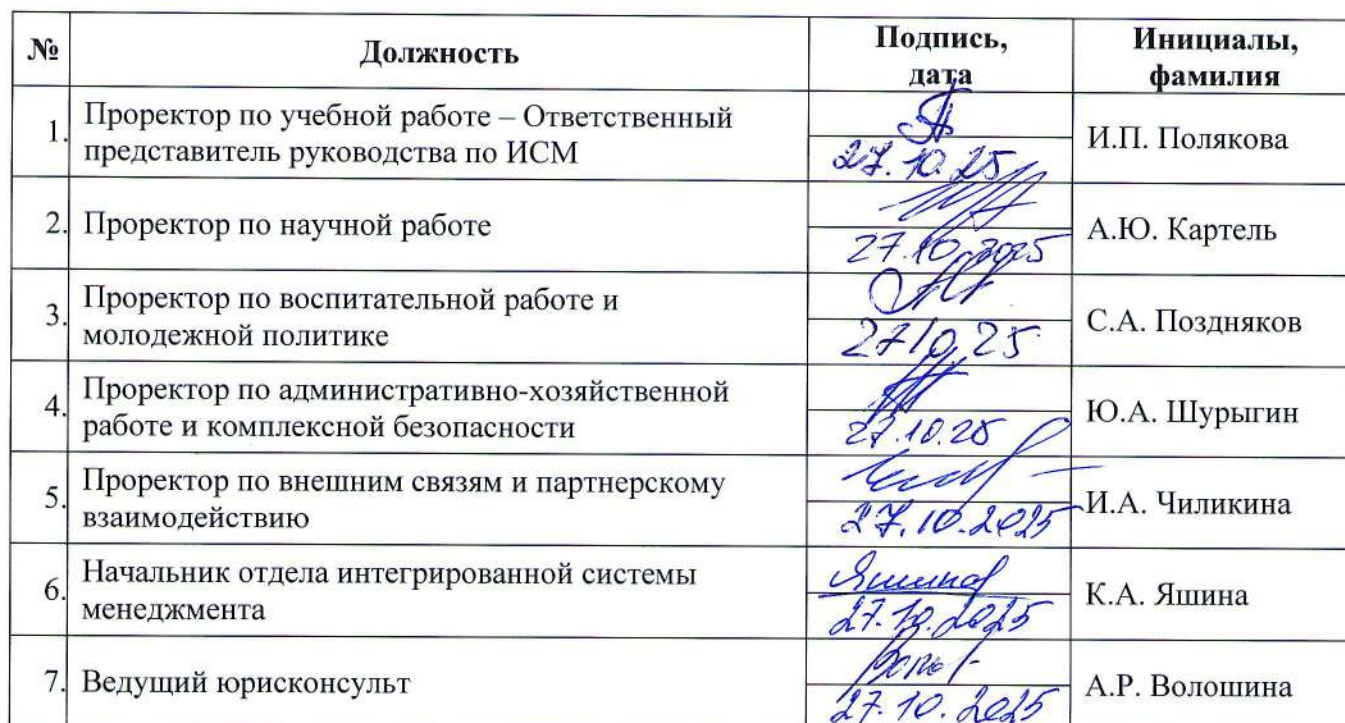 № Должность Подпись, Инициалы,
дата фамилия
1. Проректор по учебной работе – Ответственный
представитель руководства по ИСМ
27.10.25
И.П. Полякова
2. Проректор по научной работе
27.10.2025
А.Ю. Картель
3. Проректор по воспитательной работе и
молодежной политике
2710.25
С.А. Поздняков
4. Проректор по административно-хозяйственной
работе и комплексной безопасности
27.10.25
Ю.А. Шурыгин
5. Проректор по внешним связям и партнерскому
взаимодействию
27.10.2025
И.А. Чиликина
6. Начальник отдела интегрированной системы
менеджмента
27.10.2025
К.А. Яшина
7. Ведущий юрисконсульт
27.10.2025
А.Р. Волошина